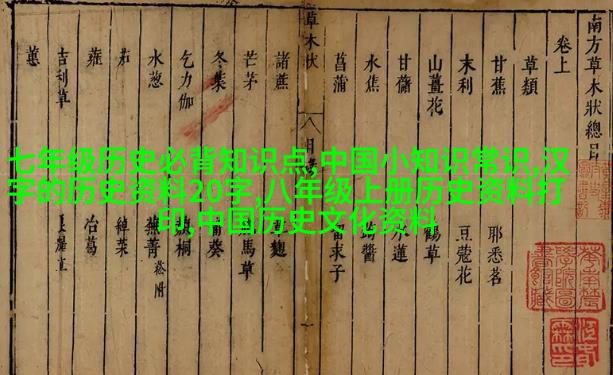 南方草木狀總目
卷上
草類
甘蕉 耶悉茗
末利 豆蔻花
山薑花 鶴草
甘藷 水蓮
水蕉 蒟醬
菖蒲 留求子
草木狀 八 目
諸蔗 草麴
芒茅 馬草
冬葉 葵
乞力伽 桐
水葱 蕪菁 菘附
茄 綽菜
蕹 冶葛
吉利草
蕙
七年级历史必背知识点,中国小知识常识,汉
字的历史资料20字,八年级上册历史资料打
印,中国历史文化资料